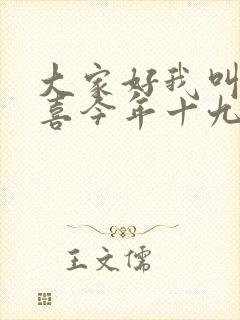 大家好我叫
喜今年十九
王文儒